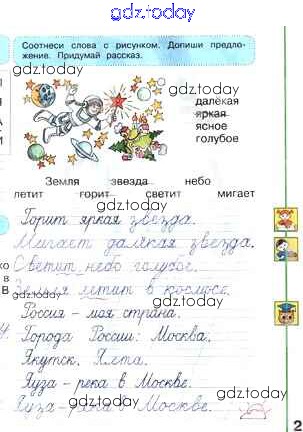 gdz.today
Соотнеси слова с рисунком. Допиши предло-
жение. Придумай рассказ.
gdz.today
gdz.today
далёкая
яркая
ясное
голубое
gdz.today
Земля звезда небо
летит горит светит мигает
gdz.today
Горит яркая звезда.
Мигает далёкая звезда.
gdz.today
Светит небо голубое.
Земля летит в космосе.
gdz.today
gdz.today
Россия – моя страна.
gdz.today
Города России: Москва.
Якутск. Ялта.
gdz.today
Яуза – река в Москве.
gdz.today
Яуза – река в Москве.
gdz.today
2